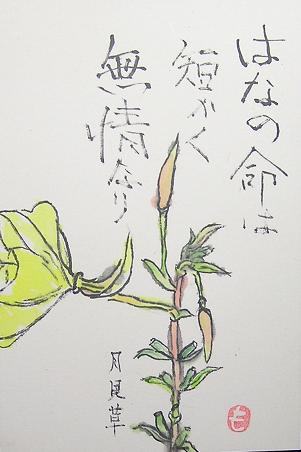 はなの命は
短かく
無情なり
月見草